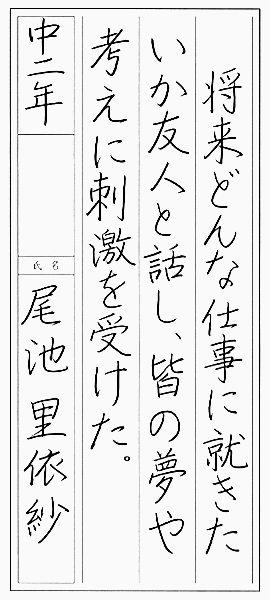 将来どんな仕事に就きた
いか友人と話し、皆の夢や
考えに刺激を受けた。
中二年
氏名
尾池里依紗